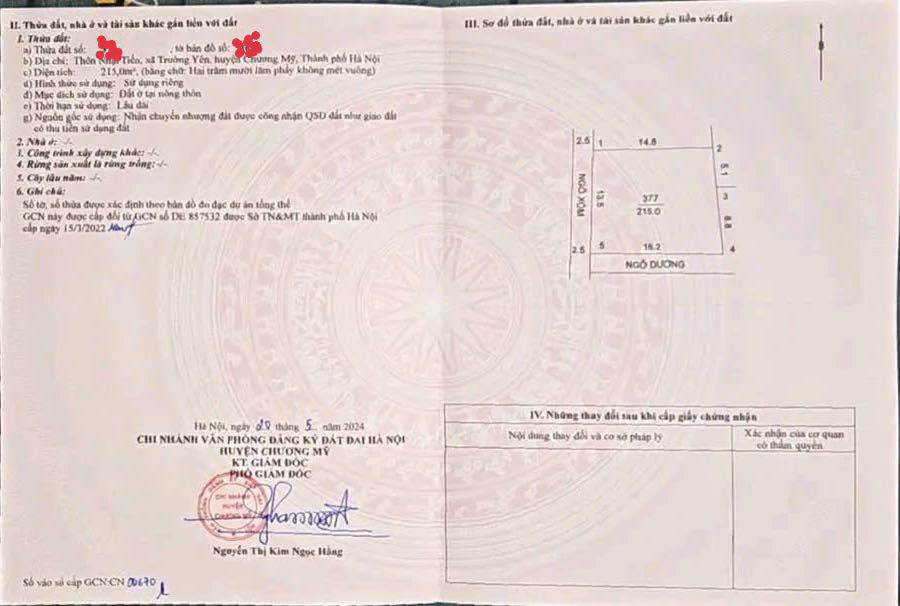 II. Thửa đất, nhà ở và tài sản khác gắn liền với đất
1. Thửa đất:
a) Thửa đất số: , tờ bản đồ số:
b) Địa chỉ: Thôn Nhật Tiến, xã Trường Yên, huyện Chương Mỹ, Thành phố Hà Nội
c) Diện tích: 215,0m², (bằng chữ: Hai trăm mười lăm phẩy không mét vuông)
d) Hình thức sử dụng: Sử dụng riêng
đ) Mục đích sử dụng: Đất ở tại nông thôn
e) Thời hạn sử dụng: Lâu dài
g) Nguồn gốc sử dụng: Nhận chuyển nhượng đất được công nhận QSD đất như giao đất
có thu tiền sử dụng đất
2. Nhà ở: -/-.
3. Công trình xây dựng khác: -/-.
4. Rừng sản xuất là rừng trồng: -/-
5. Cây lâu năm: -/-.
6. Ghi chú:
Số tờ, số thửa được xác định theo bản đồ đo đạc dự án tổng thể
GCN này được cấp đổi từ GCN số DE 857532 được Sở TN&MT thành phố Hà Nội
cấp ngày 15/3/2022
Hà Nội, ngày 20 tháng 5 năm 2024
CHI NHÁNH VĂN PHÒNG ĐĂNG KÝ ĐẤT ĐAI HÀ NỘI
HUYỆN CHƯƠNG MỸ
KT. GIÁM ĐỐC
PHÓ GIÁM ĐỐC
CHI NHÁNH
HUYỆN
CHƯƠNG MỸ
Nguyễn Thị Kim Ngọc Hằng
Số vào sổ cấp GCN:CN 00670
III. Sơ đồ thửa đất, nhà ở và tài sản khác gắn liền với đất
B
2.5 1 14.8 2
5.1
NGÕ XÓM
13.5
377
215.0
3
8.8
2.5 5 16.2 4
NGÕ DƯƠNG
IV. Những thay đổi sau khi cấp giấy chứng nhận
Nội dung thay đổi và cơ sở pháp lý
Xác nhận của cơ quan
có thẩm quyền